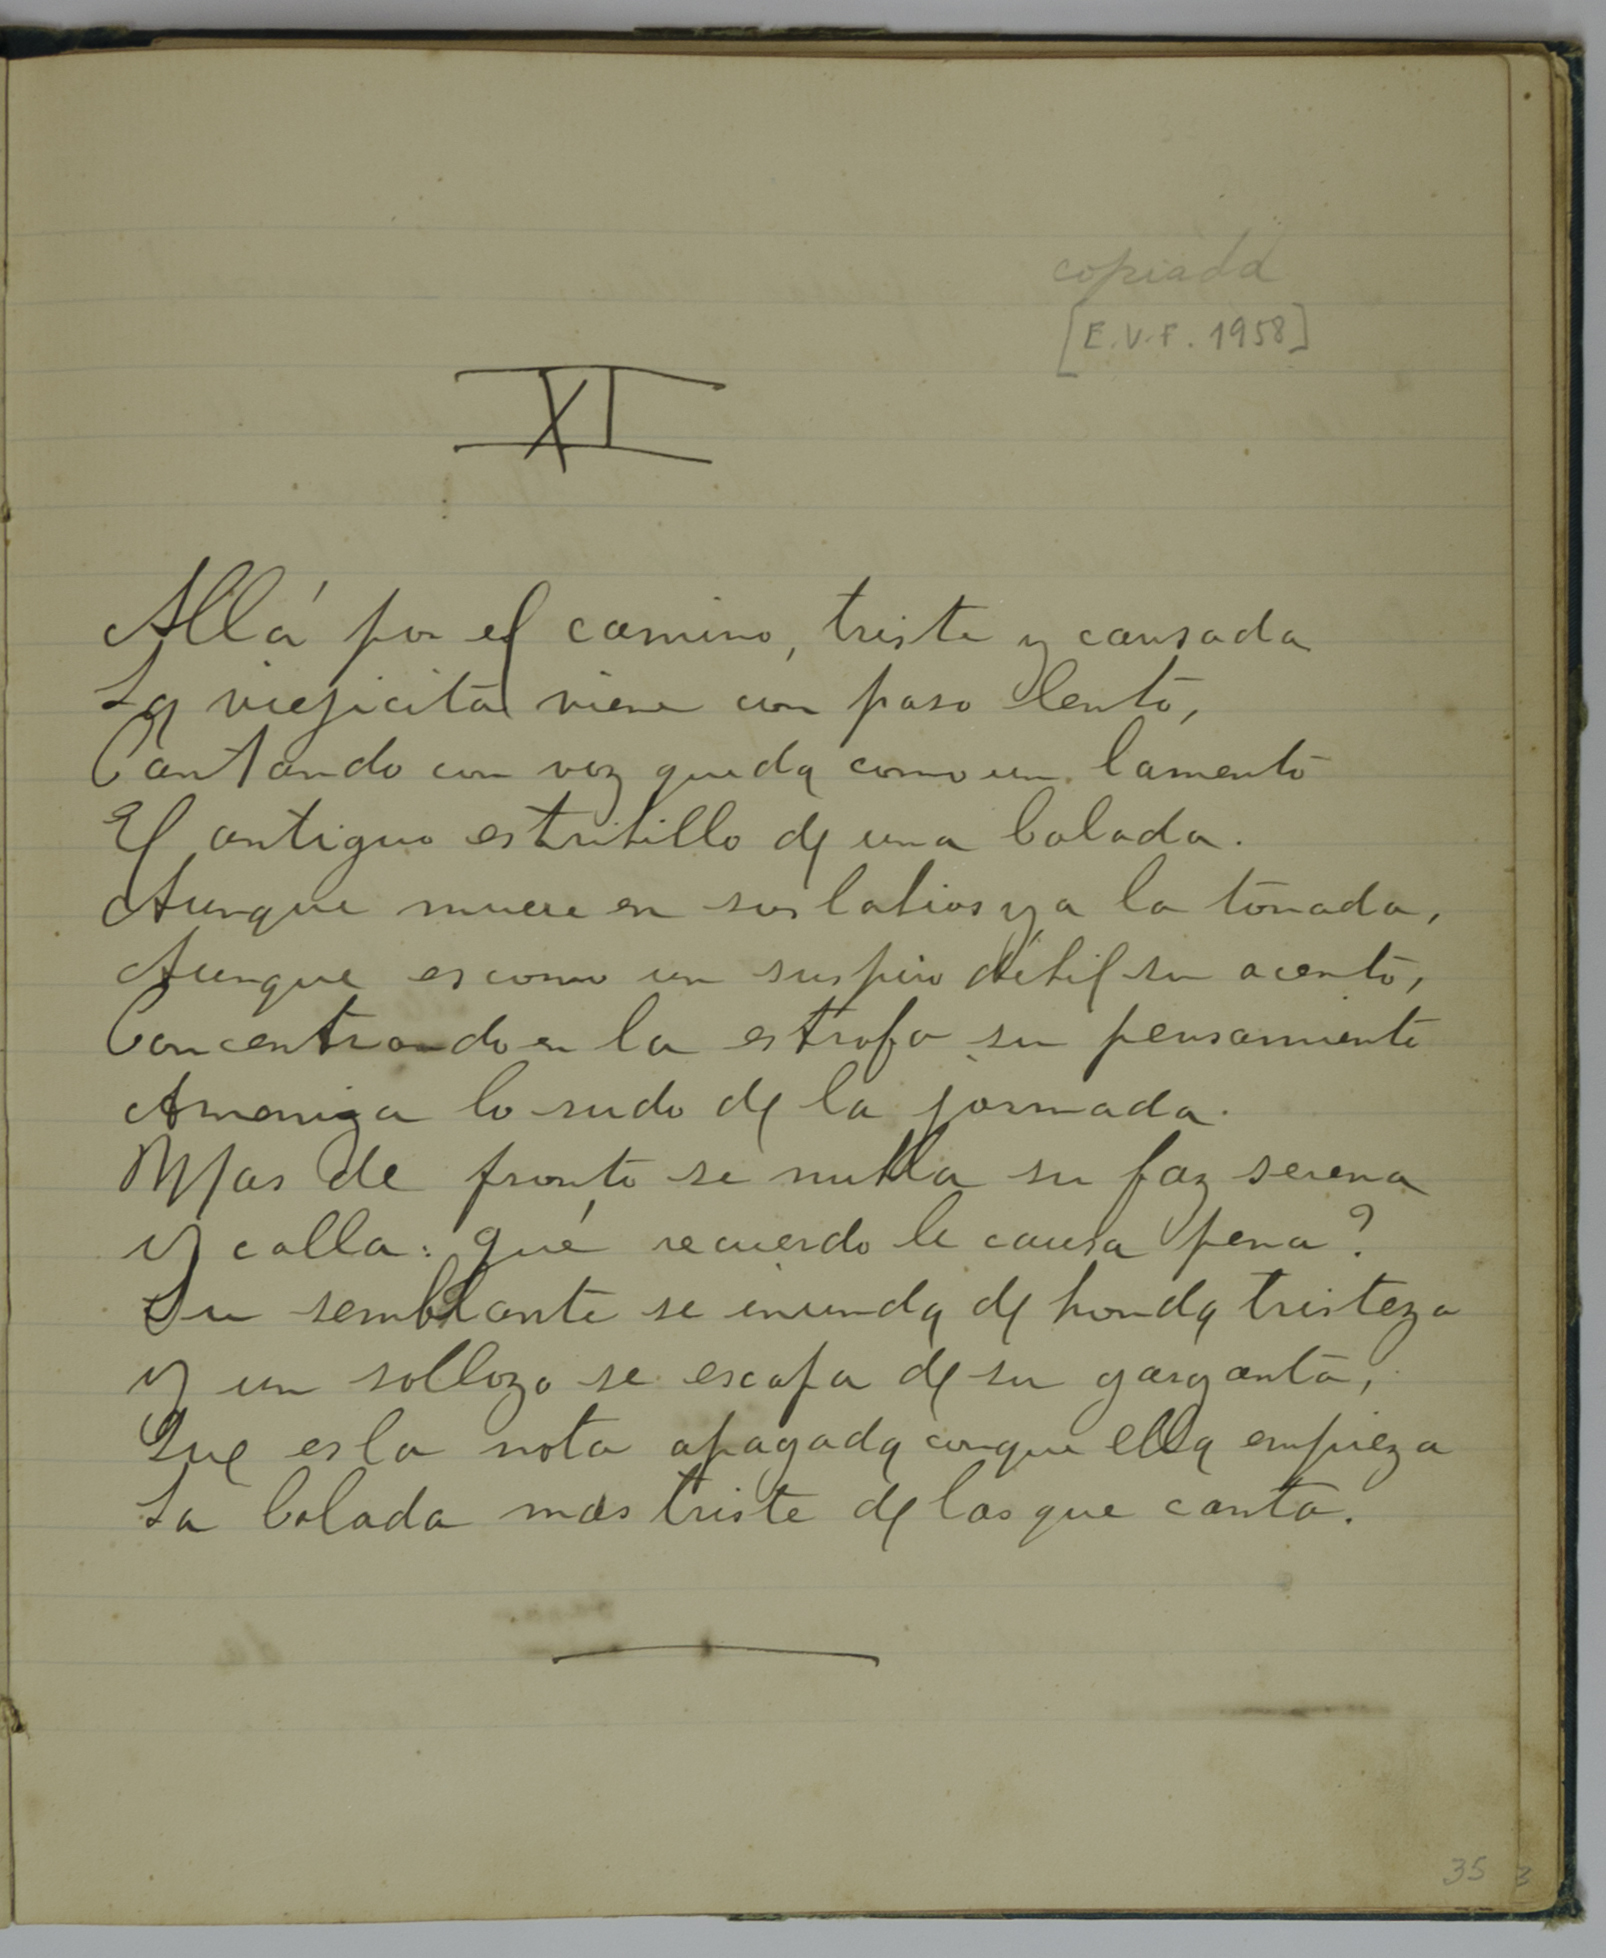 copiada
[E.V.F. 1958]
XI
Allá por el camino, triste y cansada
La viejicita viene con paso lento,
Cantando con voz queda como un lamento
El antiguo estribillo de una balada.
Aunque muere en sus labios ya la tonada,
Aunque es como un suspiro débil su acento,
Concentrando en la estrofa su pensamiento
Ameniza lo rudo de la jornada.
Mas de pronto se nubla su faz serena
y calla: qué recuerdo le causa pena?
Su semblante se inunda de honda tristeza
y un sollozo se escapa de su garganta,
Que es la nota apagada conque ella empieza
La balada mas triste de las que canta.
35